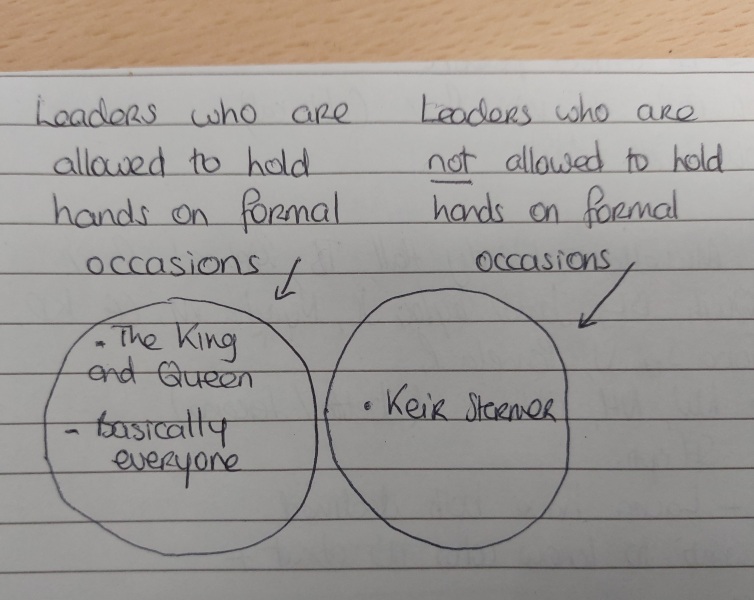 Leaders who are
allowed to hold
hands on formal
occasions
• The King
and Queen
- basically
everyone
Leaders who are
not allowed to hold
hands on formal
occasions
• Keir Starmer